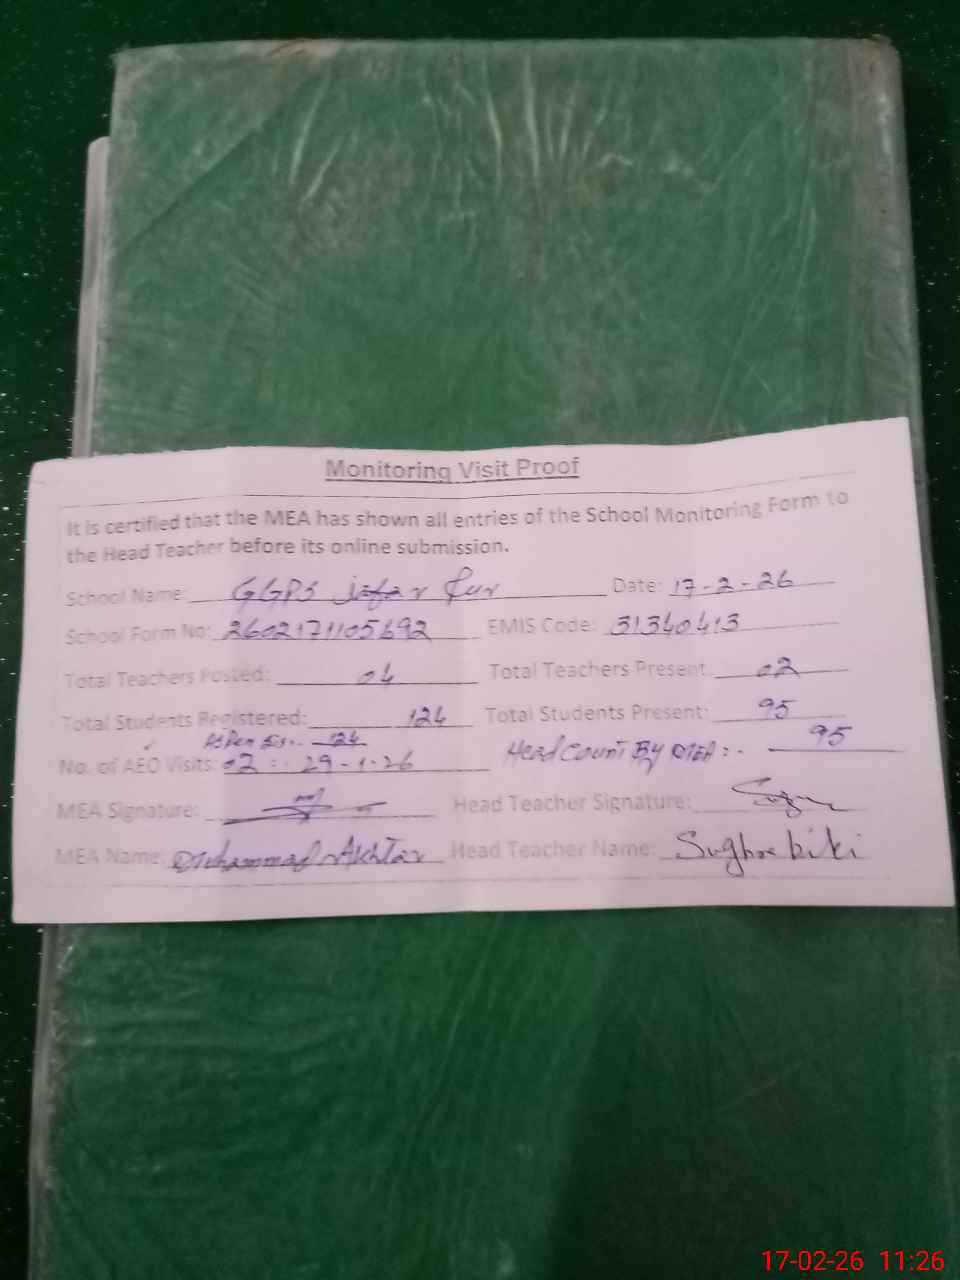 Monitoring Visit Proof
It is certified that the MEA has shown all entries of the School Monitoring Form to
the Head Teacher before its online submission.
School Name: GGPS Jafar Pur Date: 17-2-26
School Form No: 2602171105692 EMIS Code: 31340413
Total Teachers Posted: 04 Total Teachers Present: 02
Total Students Registered: 124 Total Students Present: 95
As Per Sis:- 124 Head Count By MEA:- 95
No. of AEO Visits: 02 :- 29-1-26
MEA Signature: Head Teacher Signature:
MEA Name: Muhammad Akhtar Head Teacher Name: Sughra bibi
17-02-26 11:26